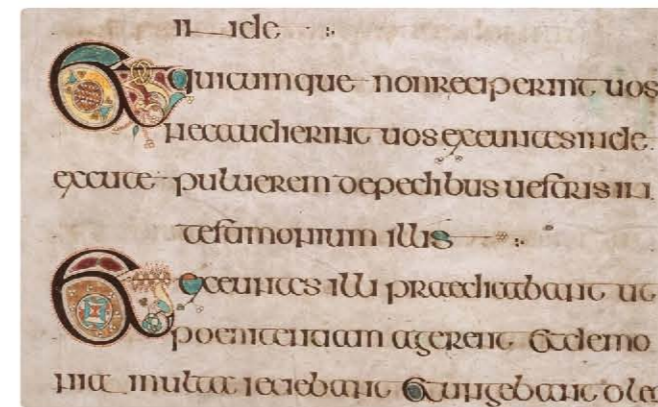 Et quicumque nonreciperint uos
necaudierint uos exeuntes inde
excute puluerem depedibus uestris in
testimonium illis
Et exeuntes illi praedicabant ut
poenitentiam agerent Et demo
nia multa ieciebant Et ungebant ole